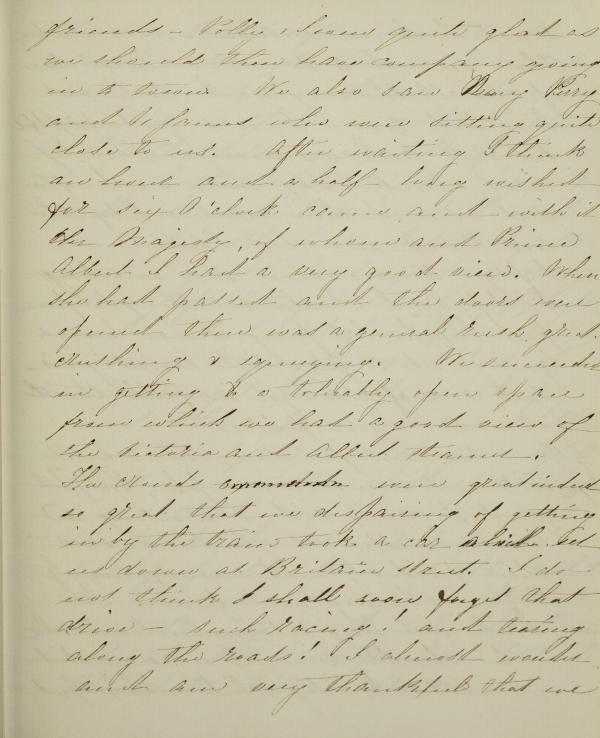 friends – Polly & I were quite glad as
we should then have company going
in to town. We also saw Mary Perry
and   who were sitting quite
close to us. After waiting I think
an hour and a half – long wished
for six O'clock came and with it
Her Majesty, of whom and Prince
Albert I had a very good view. When
she had passed and the doors were
opened there was a general rush, great
crushing & squeezing. We succeeded
in getting to a tolerably open space
from which we had a good view of
the Victoria and Albert steamer.
The crowds were great indeed
so great that we despairing of getting
in by the train took a car set
us down at Britain Street. I do
not think I shall soon forget that
drive – such racing! and tearing
along the roads! I almost wonder
and am very thankful that we